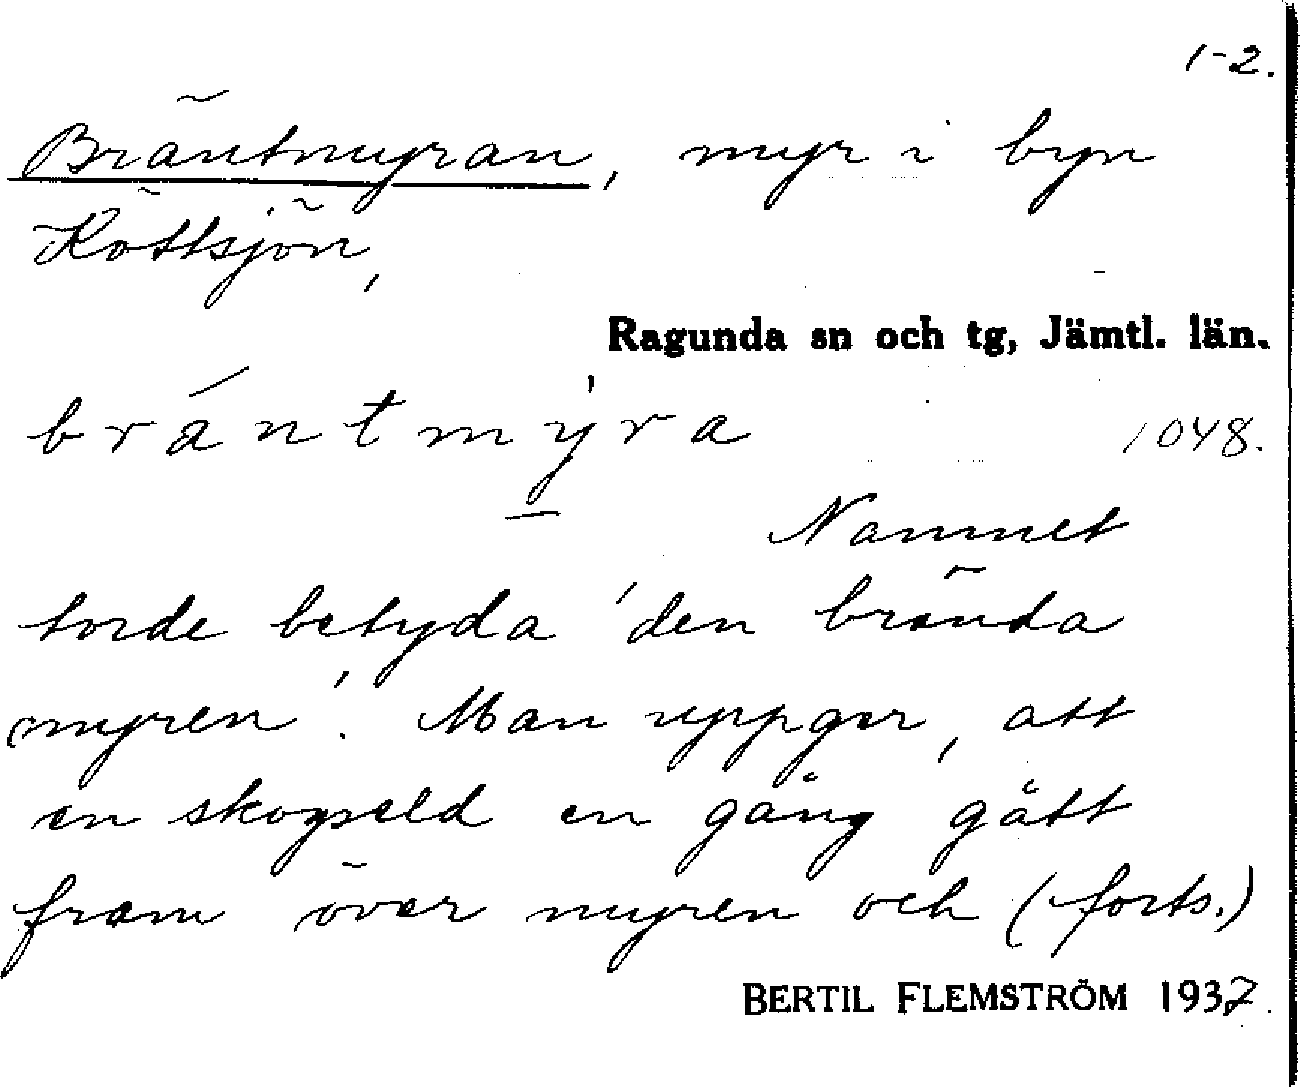 1-2.
Bräntmyran, myr i byn
Köttsjön,
Ragunda sn och tg, Jämtl. län.
brántmýra 1048.
Namnet
torde betyda 'den brända
myren'. Man uppger, att
en skogseld en gång gått
fram över myren och (forts.)
BERTIL FLEMSTRÖM 1937.